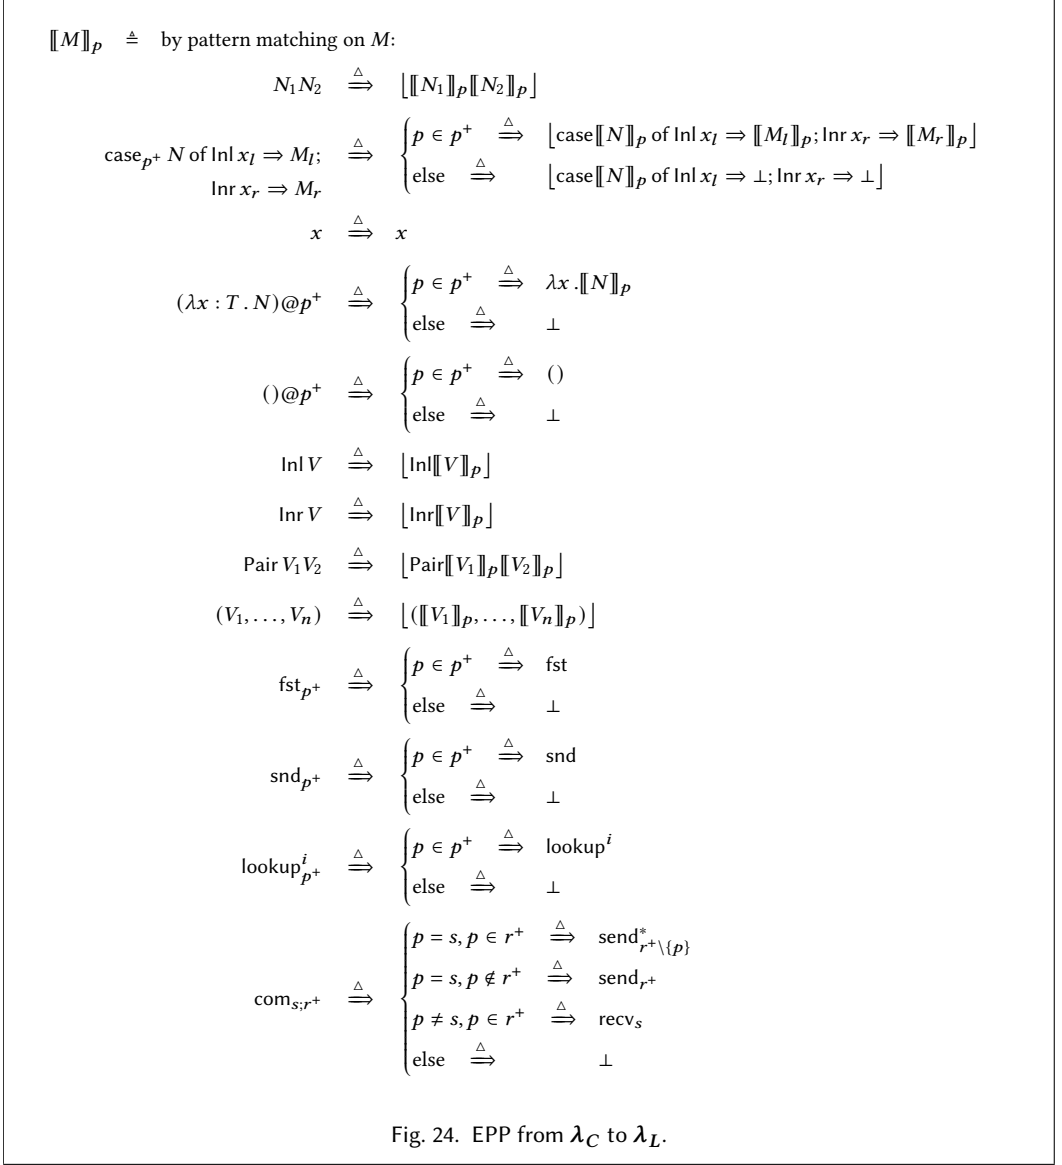 ⟦M⟧ₚ ≜ by pattern matching on M:
N₁N₂ ≜⇒ ⌊⟦N₁⟧ₚ⟦N₂⟧ₚ⌋
case_{p⁺} N of Inl x_l ⇒ M_l; Inr x_r ⇒ M_r ≜⇒ { p ∈ p⁺ ≜⇒ ⌊case⟦N⟧ₚ of Inl x_l ⇒ ⟦M_l⟧ₚ; Inr x_r ⇒ ⟦M_r⟧ₚ⌋
else ≜⇒ ⌊case⟦N⟧ₚ of Inl x_l ⇒ ⊥; Inr x_r ⇒ ⊥⌋
x ≜⇒ x
(λx : T . N)@p⁺ ≜⇒ { p ∈ p⁺ ≜⇒ λx .⟦N⟧ₚ
else ≜⇒ ⊥
()@p⁺ ≜⇒ { p ∈ p⁺ ≜⇒ ()
else ≜⇒ ⊥
Inl V ≜⇒ ⌊Inl⟦V⟧ₚ⌋
Inr V ≜⇒ ⌊Inr⟦V⟧ₚ⌋
Pair V₁V₂ ≜⇒ ⌊Pair⟦V₁⟧ₚ⟦V₂⟧ₚ⌋
(V₁, . . . , Vₙ) ≜⇒ ⌊(⟦V₁⟧ₚ, . . . , ⟦Vₙ⟧ₚ)⌋
fst_{p⁺} ≜⇒ { p ∈ p⁺ ≜⇒ fst
else ≜⇒ ⊥
snd_{p⁺} ≜⇒ { p ∈ p⁺ ≜⇒ snd
else ≜⇒ ⊥
lookup^i_{p⁺} ≜⇒ { p ∈ p⁺ ≜⇒ lookup^i
else ≜⇒ ⊥
com_{s;r⁺} ≜⇒ { p = s, p ∈ r⁺ ≜⇒ send*_{r⁺\{p}}
p = s, p ∉ r⁺ ≜⇒ send_{r⁺}
p ≠ s, p ∈ r⁺ ≜⇒ recv_s
else ≜⇒ ⊥
Fig. 24. EPP from λ_C to λ_L.